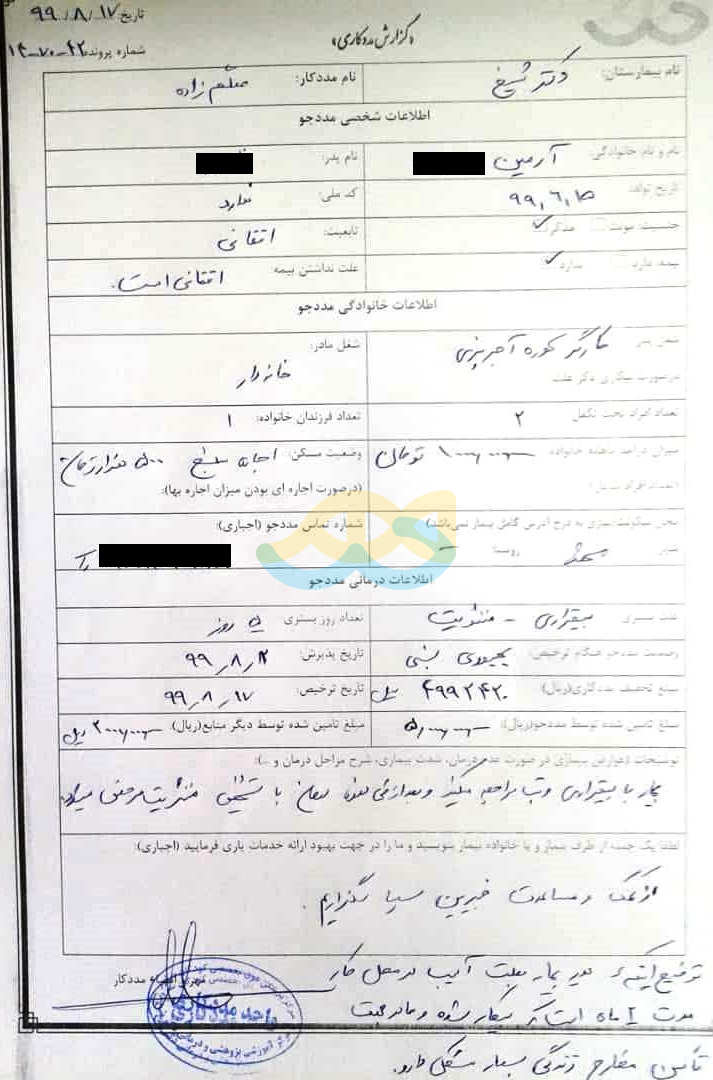 تاریخ: ۹۹/۸/۱۷
«گزارش مددکاری»
شماره پرونده:
نام بیمارستان: دکتر شیخ نام مددکار: معلم زاده
اطلاعات شخصی مددجو
نام و نام خانوادگی: آرمین نام پدر:
تاریخ تولد: ۹۹,۶,۱۵ کد ملی: ندارد
جنسیت: مونث مذکر ✓ تابعیت: افغانی
بیمه: دارد ندارد ✓ علت نداشتن بیمه: افغانی است.
اطلاعات خانوادگی مددجو
شغل پدر: کارگر کوره آجرپزی شغل مادر: خانه دار
درصورت بیکاری ذکر علت
تعداد افراد تحت تکفل ۲ تعداد فرزندان خانواده: ۱
میزان درآمد ماهانه خانواده ۱۰۰۰/۰۰۰ تومان وضعیت مسکن: اجاره مبلغ ۵۰۰ هزار تومان
(درصورت اجاره ای بودن میزان اجاره بها):
محل سکونت(نیازی به درج آدرس کامل بیمار نمی‌باشد) شماره تماس مددجو (اجباری):
شهر مشهد روستا –
اطلاعات درمانی مددجو
علت بستری بیقراری – مننژیت تعداد روز بستری ۵ روز
وضعیت مددجو هنگام ترخیص: بهبودی نسبی تاریخ پذیرش: ۹۹/۸/۱۲
مبلغ تخفیف مددکاری(ریال) ۴۹۹۲۴۲۰ ریال تاریخ ترخیص: ۹۹/۸/۱۷
مبلغ تامین شده توسط مددجو(ریال): ۵/۰۰۰/۰۰۰ مبلغ تامین شده توسط دیگر منابع(ریال): ۲۰۰۰/۰۰۰ ریال
توضیحات (عوارض بیماری در صورت عدم درمان، شدت بیماری، شرح مراحل درمان و ...):
بیمار با بیقراری و تب مراجعه میکند و بعد از طی دوره درمان با تشخیص مننژیت مرخص میگردد.
لطفا یک جمله از طرف بیمار و یا خانواده بیمار بنویسید و ما را در جهت بهبود ارائه خدمات یاری فرمایید (اجباری):
از کمک و مساعدت خیرین سپاسگزاریم.
مهر و امضاء مددکار
توضیح اینکه پدر بیمار بعلت آسیب در محل کار
مدت ۲ ماه است که بیکار شده و مادر جهت
تأمین مخارج زندگی بسیار مشکل دارد.